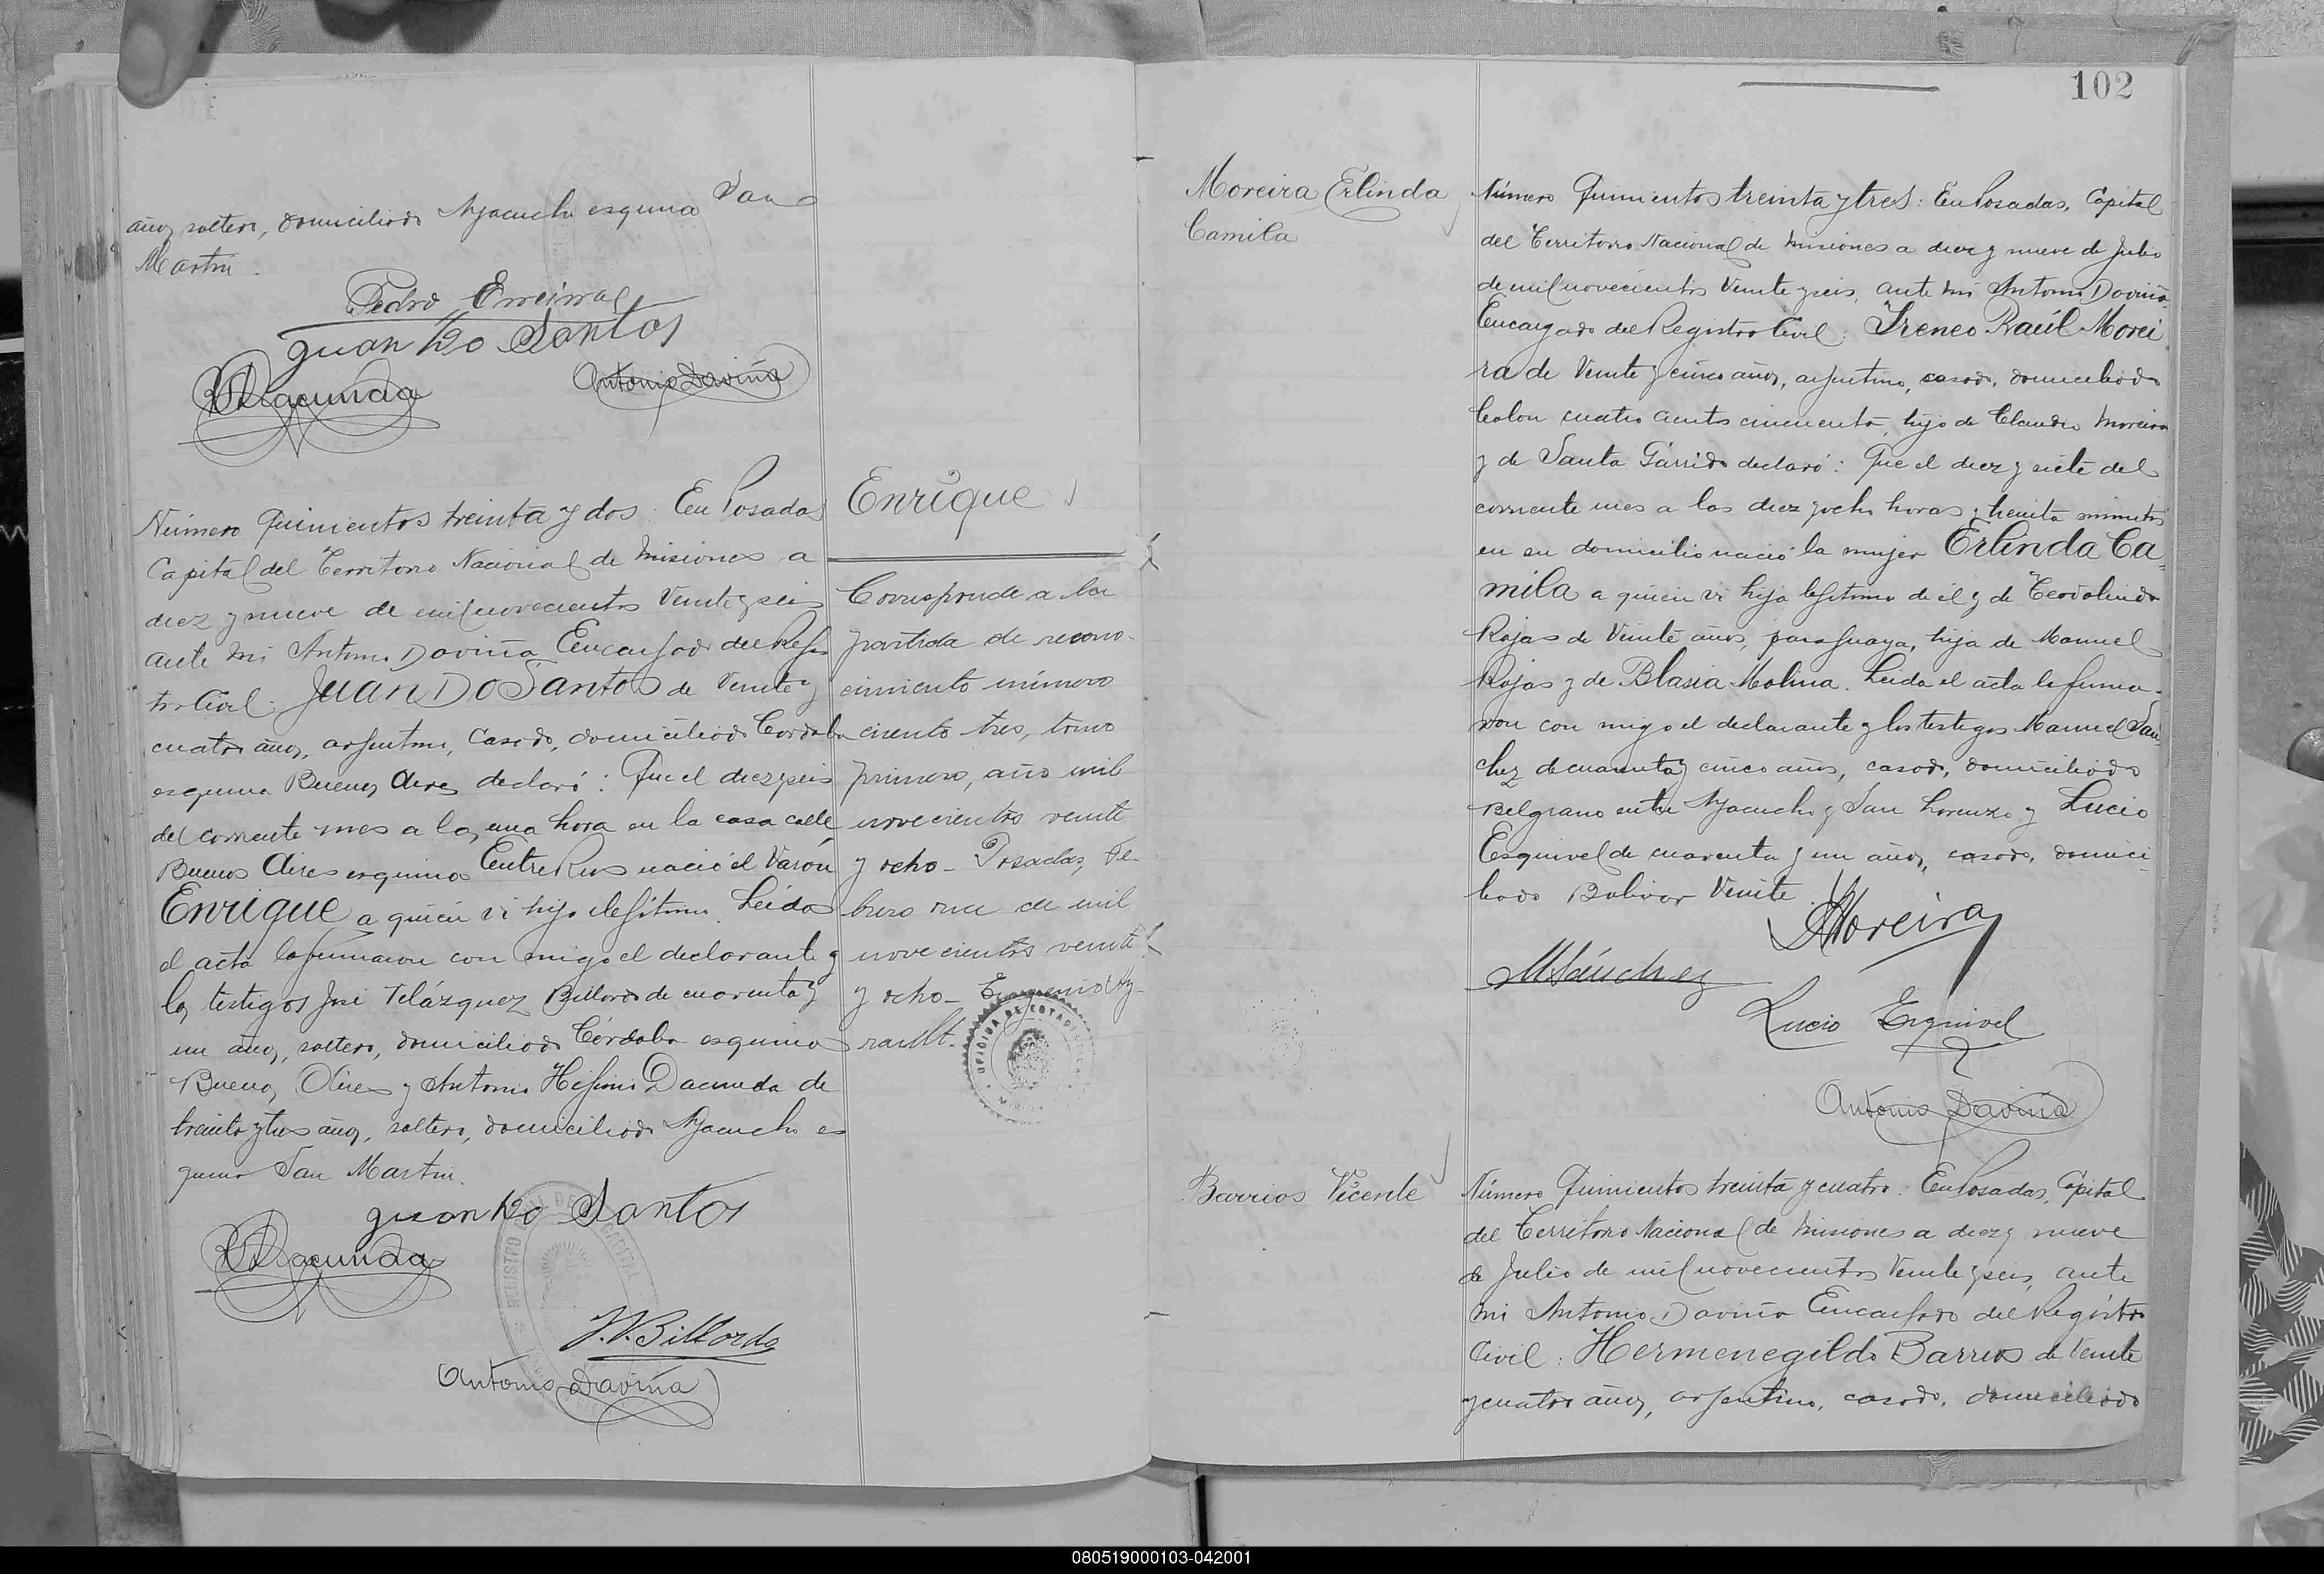 años, soltero, domiciliado Ayacucho esquina San
Martin.
Pedro
Juan Do Santos
Antonio Daviña
Número Quinientos treinta y dos: En Posadas
Capital del Territorio Nacional de Misiones a
diez y nueve de mil novecientos veinte y seis
ante mi Antonio Daviña Encargado del Regis
tro Civil: Juan Do Santos de veinte y
cuatro años, argentino, casado, domiciliado Cordoba
esquina Buenos Aires declaró: Que el diez y seis
del corriente mes a la una hora en la casa calle
Buenos Aires esquina Entre Rios nació el varón
Enrique a quien vi hijo ilegítimo. Leida
el acta la firmaron con migo el declarante y
los testigos José Velázquez Billordo de cuarenta y
un años, soltero, domiciliado Córdoba esquina
Buenos Aires y Antonio Dacunda de
treinta y tres años, soltero, domiciliado Ayacucho es
quina San Martin.
Juan Do Santos
J.V. Billordo
Antonio Daviña
Enrique
Corresponde a la
partida de recono-
cimiento número
ciento tres, tomo
primero, año mil
novecientos veinte
y ocho - Posadas, Fe-
brero once de mil
novecientos veinte
y ocho -
OFICINA DE ESTADISTICA
102
Moreira Erlinda
Camila
Número Quinientos treinta y tres: En Posadas, Capital
del Territorio Nacional de Misiones a diez y nueve de Julio
de mil novecientos veinte y seis, ante mi Antonio Daviña
Encargado del Registro Civil: Ireneo Raúl Morei
ra de veinte y cinco años, argentino, casado, domiciliado
Colon cuatro cientos cincuenta, hijo de Claudio Moreira
y de Santa Garrido declaró: Que el diez y siete del
corriente mes a las diez y ocho horas y treinta minutos
en su domicilio nació la mujer Erlinda Ca
mila a quien vi hija legítima de él y de Teodolinda
Rojas de veinte años, paraguaya, hija de Manuel
Rojas y de Blasia Molina. Leida el acta la firma-
ron con migo el declarante y los testigos Manuel San
chez de cuarenta y cinco años, casado, domiciliado
Belgrano entre Ayacucho y San Lorenzo y Lucio
Esquivel de cuarenta y un años, casado, domici
liado Bolivar veinte.
Moreira
MSánchez
Lucio Esquivel
Antonio Daviña
Barrios Vicente
Número Quinientos treinta y cuatro: En Posadas, Capital
del Territorio Nacional de Misiones a diez y nueve
de Julio de mil novecientos veinte y seis, ante
mi Antonio Daviña Encargado del Registro
Civil: Hermenegildo Barrios de veinte
y cuatro años, argentino, casado, domiciliado
080519000103-042001